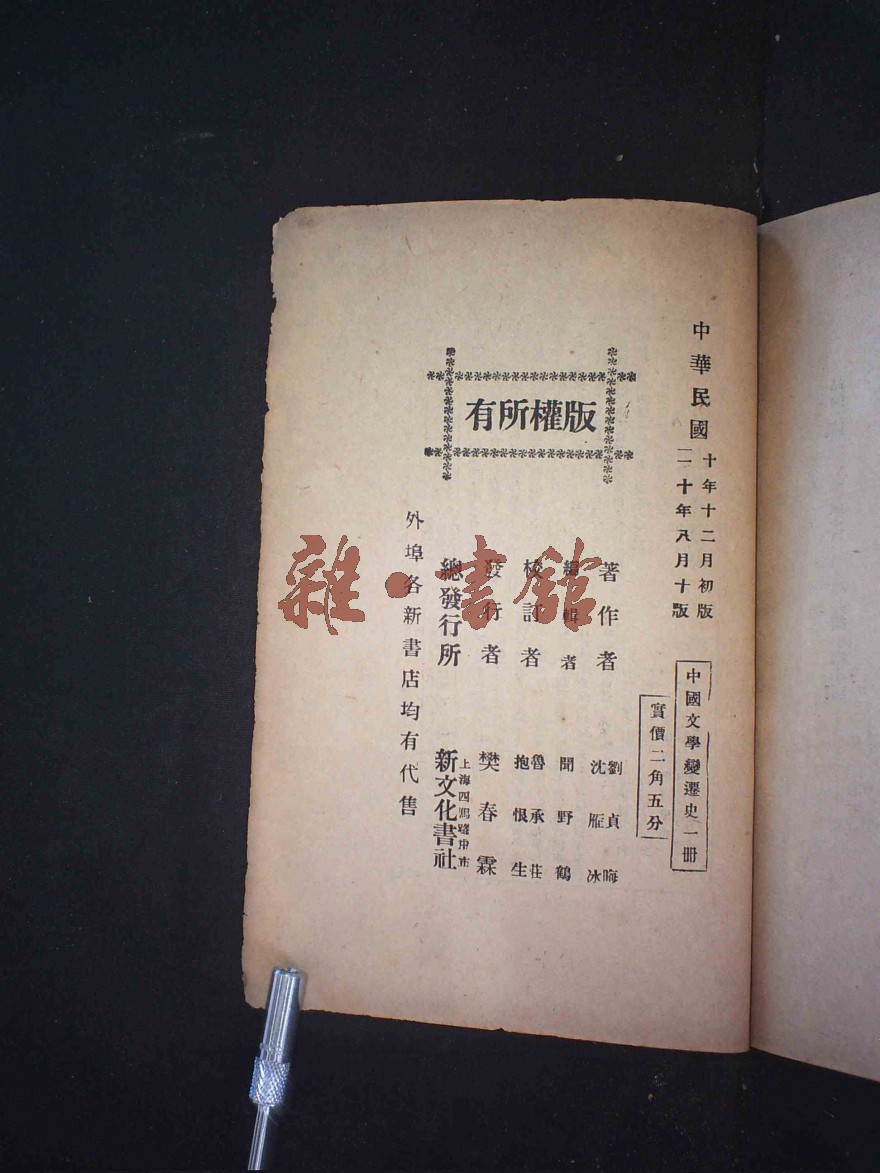 中華民國
十年十二月初版
二十年八月十版
中國文學變遷史一冊
實價二角五分
版權所有
著作者 劉貞晦 沈雁冰
編輯者 聞野鶴
校訂者 魯承莊 抱恨生
發行者 樊春霖
總發行所 上海四馬路中市 新文化書社
外埠各新書店均有代售
雜·書館